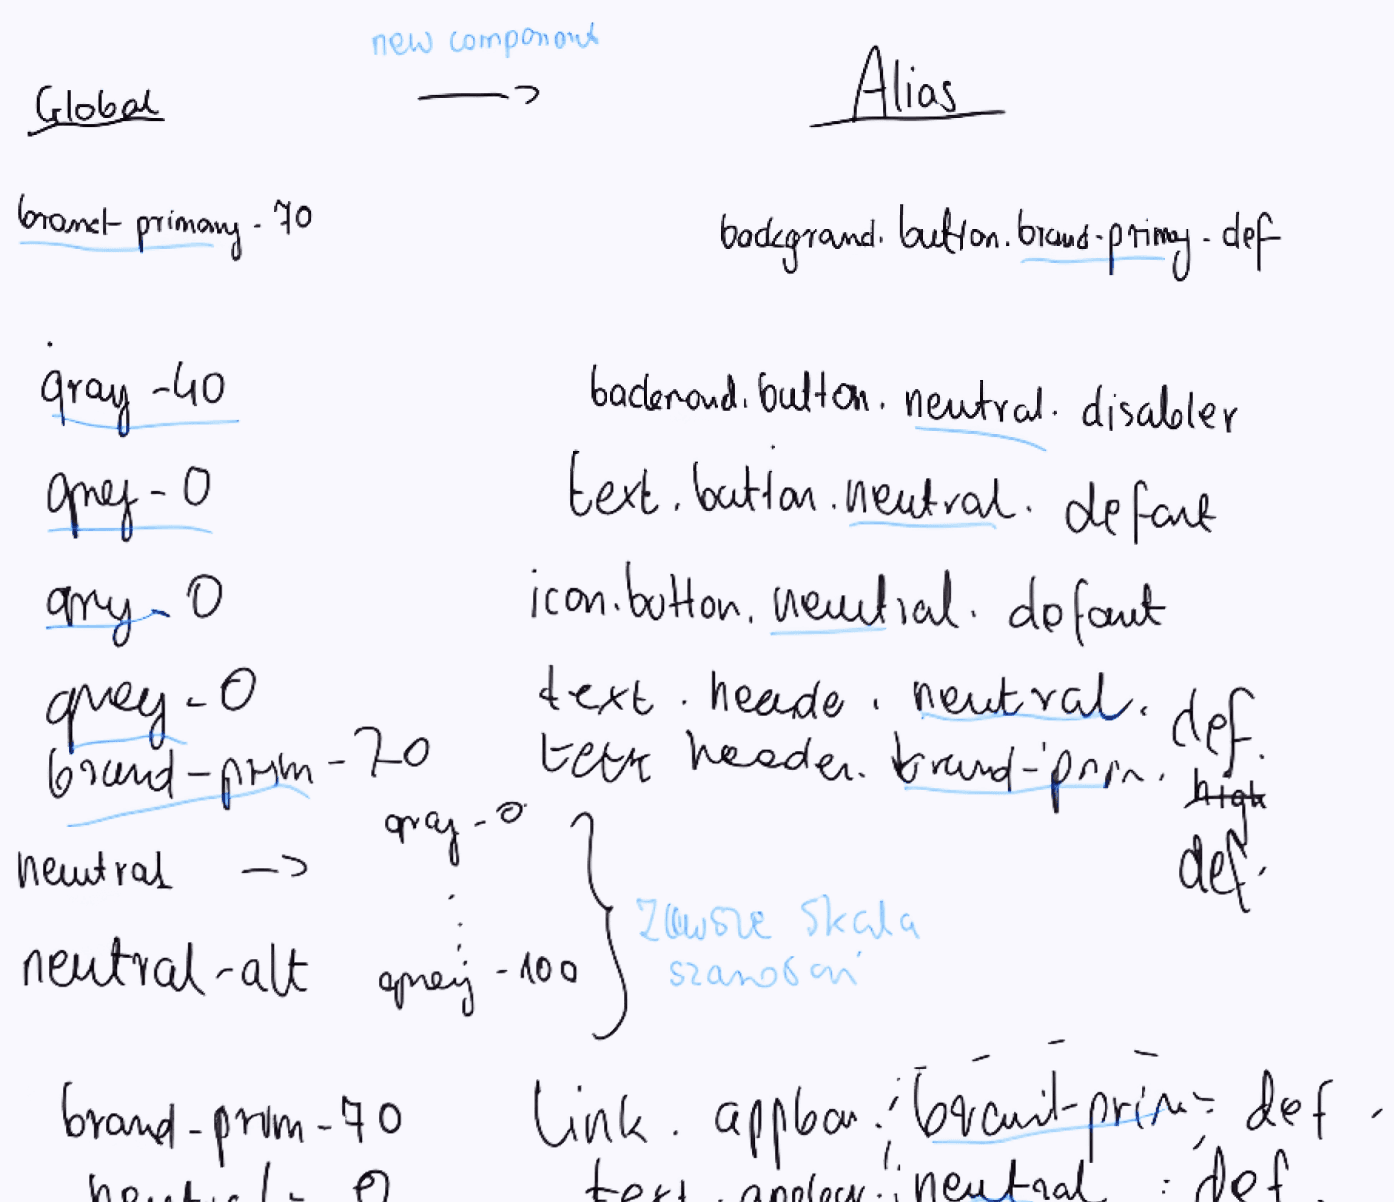 new component
Global → Alias
brand-primary-70 background.button.brand-primay-def
gray-40 background.button.neutral.disabler
grey-0 text.button.neutral.default
gray-0 icon.button.neutral.default
grey-0 text.heade.neutral.def.
brand-prim-70 text header.brand-prim. high
def.
gray-0
neutral ->
Zawsze skala
neutral-alt grey-100 szarości
brand-prim-70 link.appbar.brand-prim-def.
neutral-0 text.appbar.neutral.def.